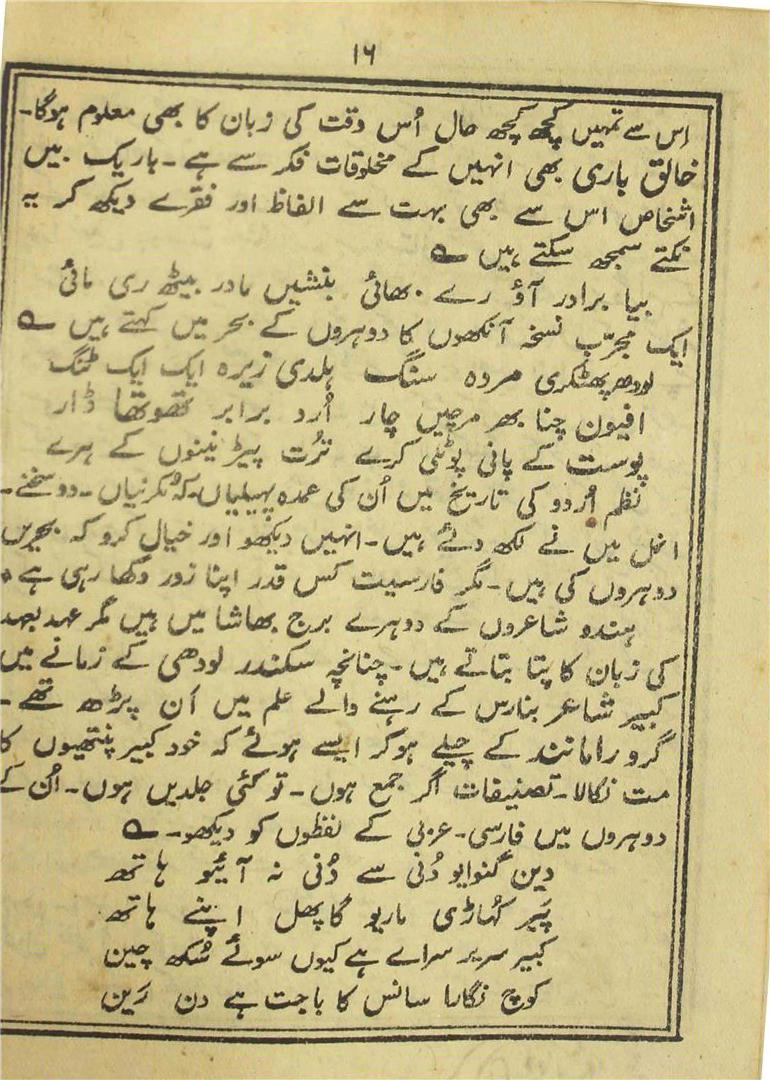 ۱۶
اِس سے تمہیں کچھ کچھ حال اُس وقت کی زبان کا بھی معلوم ہوگا۔
خالق باری بھی انہیں کے مخلوقات فکر سے ہے۔ باریک بیں
اشخاص اس سے بھی بہت سے الفاظ اور فقرے دیکھ کر یہ
نکتے سمجھ سکتے ہیں ؎
بیا برادر آؤ رے بھائی بنشیں مادر بیٹھ ری مائی
ایک مجرّب نسخہ آنکھوں کا دوہروں کے بحر میں کہتے ہیں ؎
لودھ پھٹکری مردہ سنگ ہلدی زیرہ ایک ایک ٹنگ
افیون چنا بھر مرچیں چار اُرد برابر تھوتھا ڈار
پوست کے پانی پوٹلی کرے تُرت پیڑ نینوں کے ہرے
نظم اُردو کی تاریخ میں اُن کی عمدہ پہیلیاں۔ کہ مُکرنیاں۔ دو سخنے۔
انمل میں نے لکھ دئے ہیں۔ انہیں دیکھو اور خیال کرو کہ بحریں
دوہروں کی ہیں۔ مگر فارسیت کس قدر اپنا زور دکھا رہی ہے
ہندو شاعروں کے دوہرے برج بھاشا میں ہیں مگر عہد بعہد
کی زبان کا پتا بتاتے ہیں۔ چنانچہ سکندر لودھی کے زمانے میں
کبیر شاعر بنارس کے رہنے والے علم میں اَن پڑھ تھے۔
گرو رامانند کے چیلے ہوکر ایسے ہوئے کہ خود کبیر پنتھیوں کا
مت نکالا۔ تصنیفات اگر جمع ہوں۔ تو کئی جلدیں ہوں۔ اُن کے
دوہروں میں فارسی۔ عربی کے لفظوں کو دیکھو۔ ؎
دین گنوایو دُنی سے دُنی نہ آئیو ہاتھ
پَیر کُہاڑی ماریو گاپھل اپنے ہاتھ
کبیر سریر سراے ہے کیوں سوئے سُکھ چین
کوچ نگارا سانس کا باجت ہے دن رَین